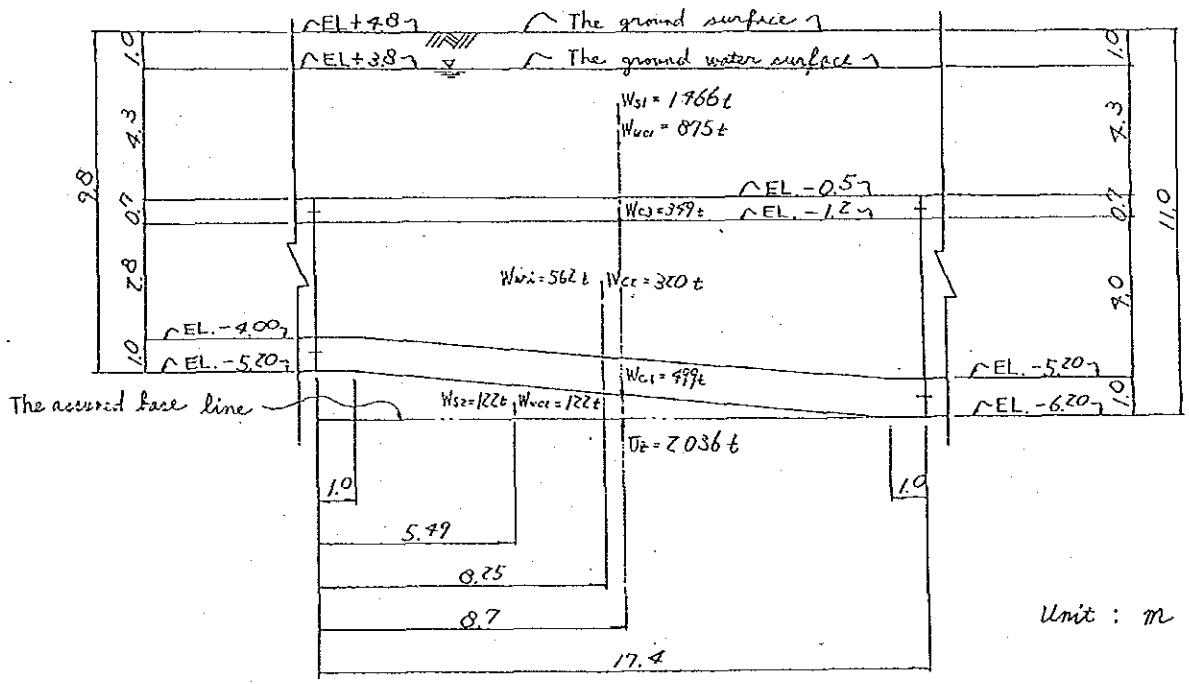 EL+4.8 The ground surface
EL+3.8 The ground water surface
1.0
4.3
0.7
2.8
1.0
9.8
1.0
4.3
0.7
4.0
1.0
11.0
Ws1 = 1466 t
Wwc1 = 875 t
EL. -0.5
Wc3 = 349 t EL. -1.2
Wwi = 562 t Wc2 = 320 t
EL. -4.00
EL. -5.20
Wc1 = 499 t
EL. -5.20
The assured base line
Ws2 = 122 t Wwc2 = 122 t
EL. -6.20
Uz = 2.036 t
1.0
1.0
5.49
8.25
8.7
17.4
Unit : m